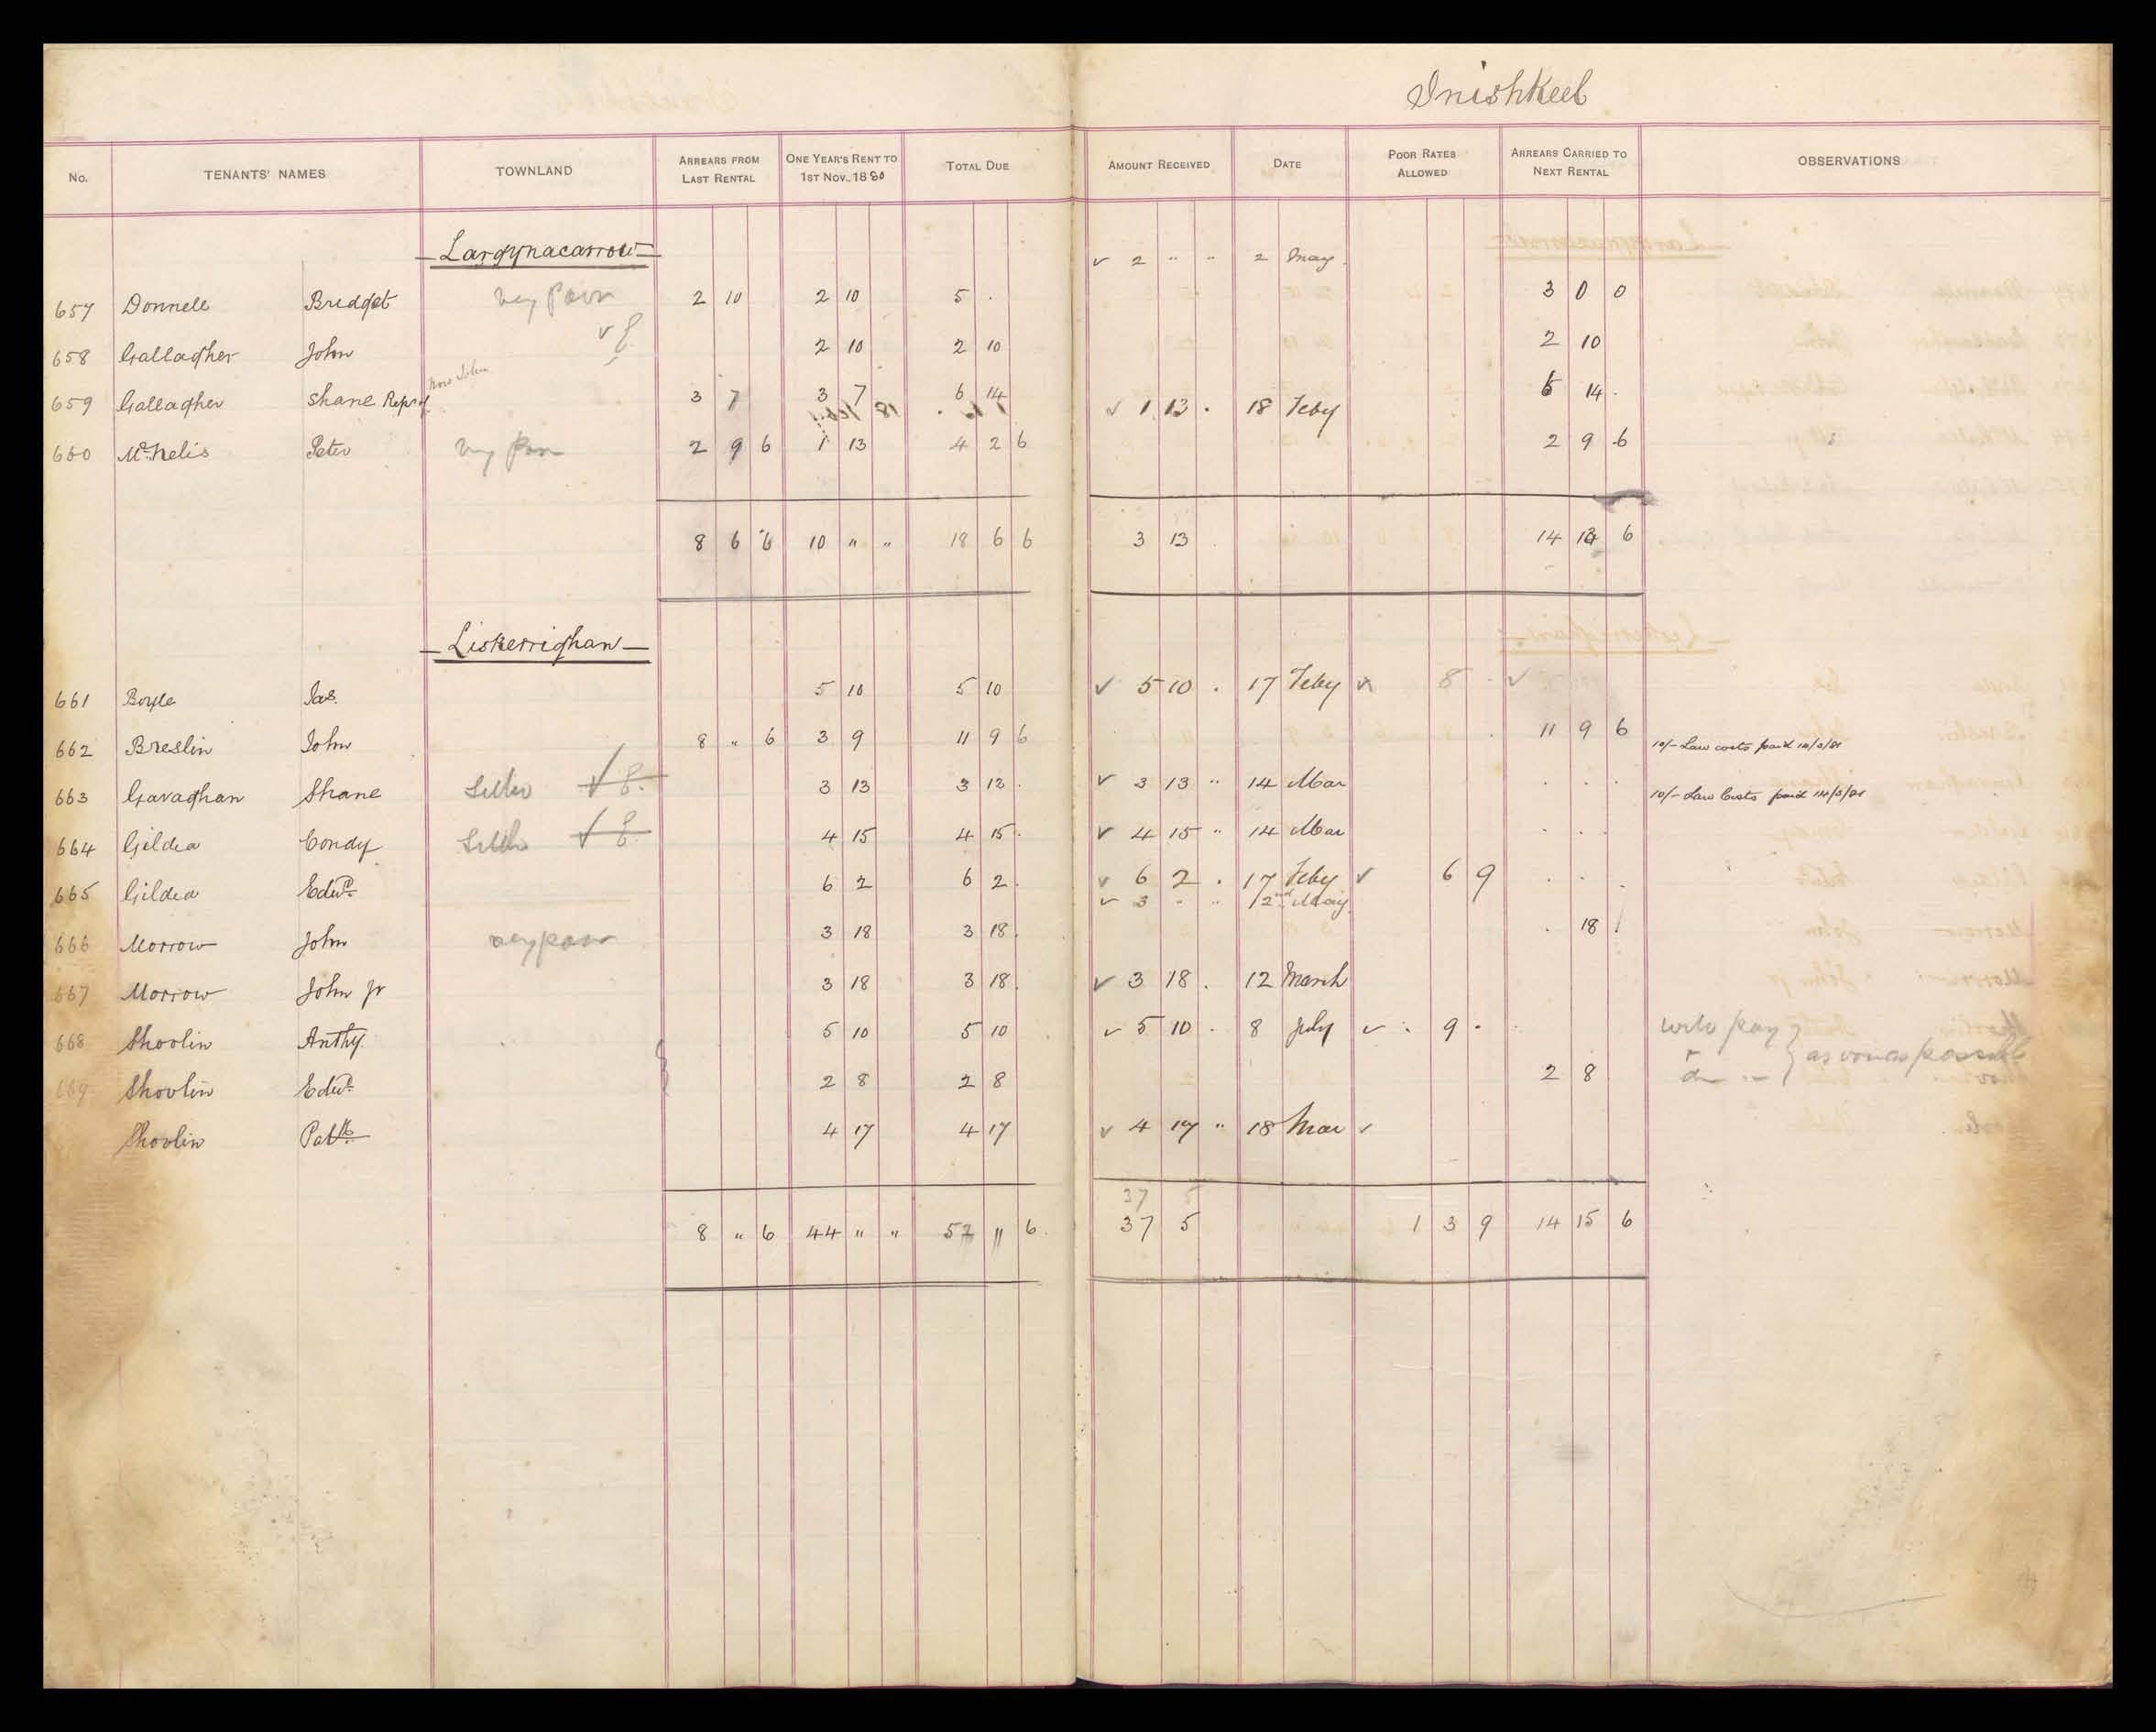 Inishkeel
No. TENANTS' NAMES TOWNLAND ARREARS FROM LAST RENTAL ONE YEAR'S RENT TO 1ST NOV., 1880 TOTAL DUE AMOUNT RECEIVED DATE POOR RATES ALLOWED ARREARS CARRIED TO NEXT RENTAL OBSERVATIONS
Largynacarrow
✓ 2 " " 2 May
657 Donnell Bridget very Poor 2 10 2 10 5 . 3 0 0
658 Gallagher John ✓ 2 10 2 10 2 10
now John
659 Gallagher Shane Reps of 3 7 3 7 6 14 6 14 .
✓ 1 13 . 18 Feby
660 McNelis Peter very poor 2 9 6 1 13 4 2 6 2 9 6
8 6 6 10 " " 18 6 6 3 13 14 13 6
Liskerrighan
661 Boyle Jas. 5 10 5 10 ✓ 5 10 . 17 Feby 8 . ✓
662 Breslin John 8 " 6 3 9 11 9 6 11 9 6 10/- Law costs paid 14/3/81
663 Gavaghan Shane 3 13 3 13 . ✓ 3 13 " 14 Mar . . . 10/- Law Costs paid 14/3/81
664 Gildea Condy 4 15 4 15 . ✓ 4 15 " 14 Mar . . .
665 Gildea Edwd. 6 2 6 2 . ✓ 6 2 . 17 Feby ✓ 6 9 . . .
✓ 3 " " 12nd May
666 Morrow John very poor 3 18 3 18 . . 18 .
667 Morrow John Jr 3 18 3 18 . ✓ 3 18 . 12 March
668 Shovlin Anthy. 5 10 5 10 ✓ 5 10 . 8 July ✓ . 9 . will pay } as soon as possible
669 Shovlin Edwd. 2 8 2 8 2 8 do "
Shovlin Patk. 4 17 4 17 ✓ 4 17 " 18 Mar ✓
37 5
8 " 6 44 " " 52 " 6 . 37 5 1 3 9 14 15 6